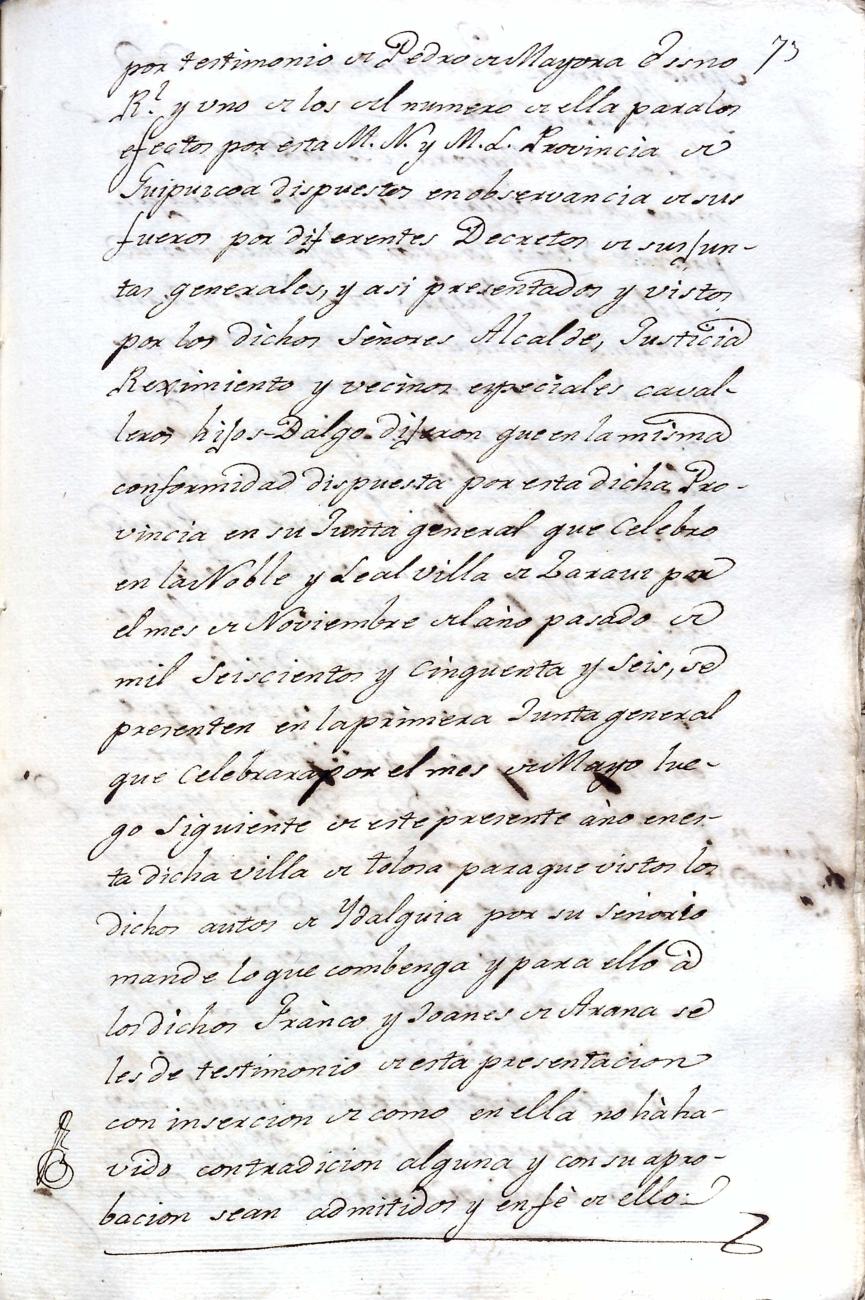 73
por testimonio de Pedro de Mayora Essno
Rl. y vno de los del numero de ella para los
efectos por esta M. N. y M. L. Provincia de
Guipuzcoa dispuestos en observancia de sus
fueros por diferentes Decretos de sus Jun-
tas generales, y asi presentados y vistos
por los dichos Señores Alcalde, Justicia
Reximiento y vecinos especiales caval-
leros hijos-Dalgo dijeron que en la misma
conformidad dispuesta por esta dicha Pro-
vincia en su Junta general que Celebro
en la Noble y Leal villa de Zarauz por
el mes de Noviembre del año pasado de
mil Seiscientos y Cinquenta y Seis, se
presenten en la primera Junta general
que Celebrara por el mes de Mayo lue-
go Siguiente de este presente año en es-
ta dicha villa de tolosa para que vistos los
dichos autos de Ydalguia por su señorio
mande lo que combenga y para ello à
los dichos Franco y Joanes de Arana se
les de testimonio de esta presentacion
con insercion de como en ella no hà ha-
vido contradicion alguna y con su apro-
bacion sean admitidos y en fè de ello: